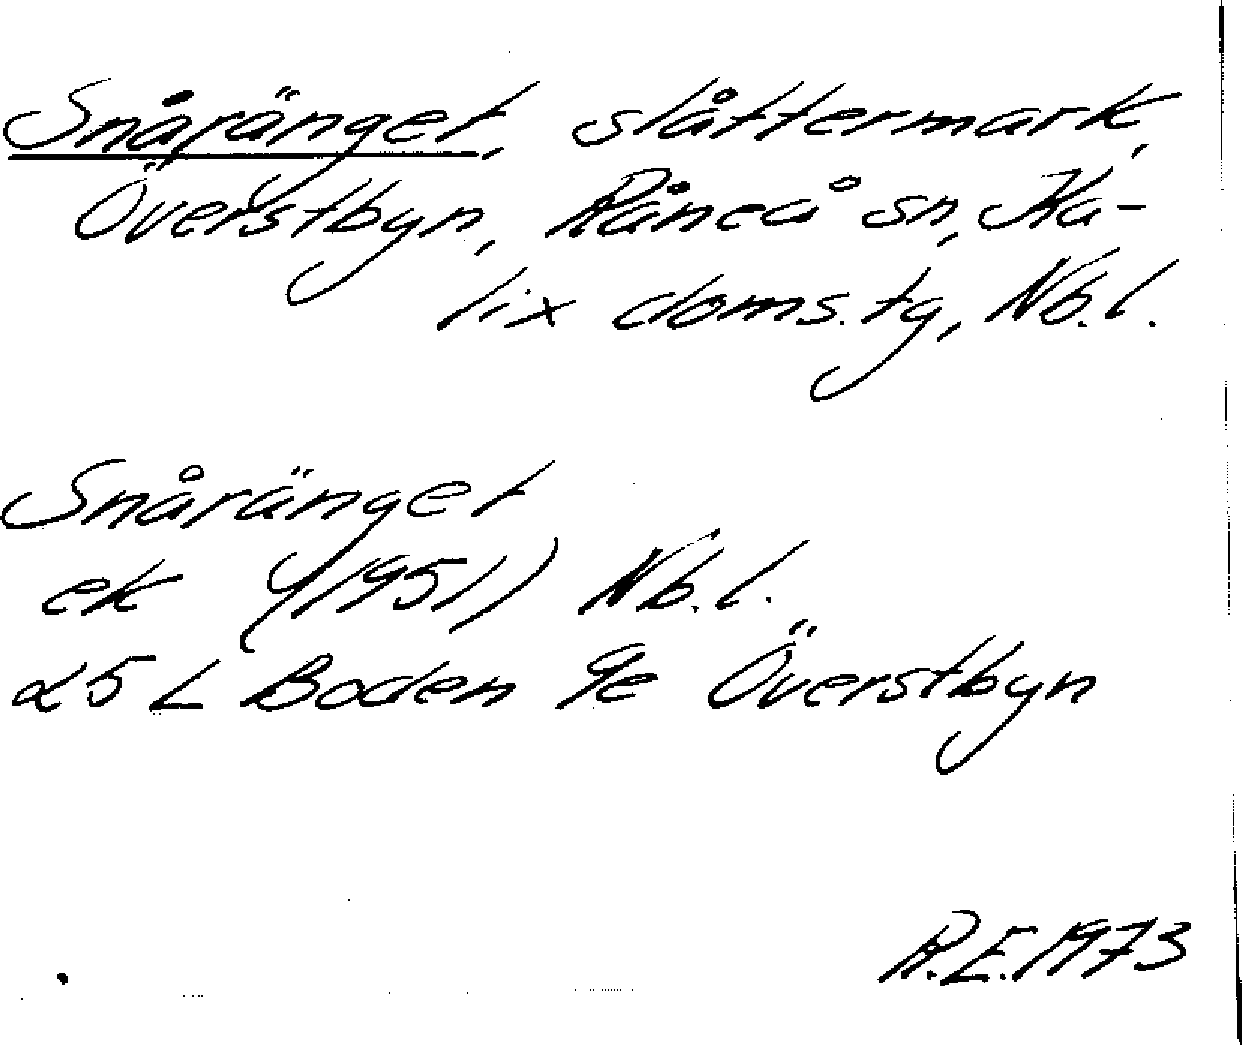 Snåränget, slåttermark,
Överstbyn, Råneå sn, Ka-
lix doms.tg, Nb.l.
Snåränget
ek (1951) Nb.l.
25 L Boden 9e Överstbyn
R.E. 1973